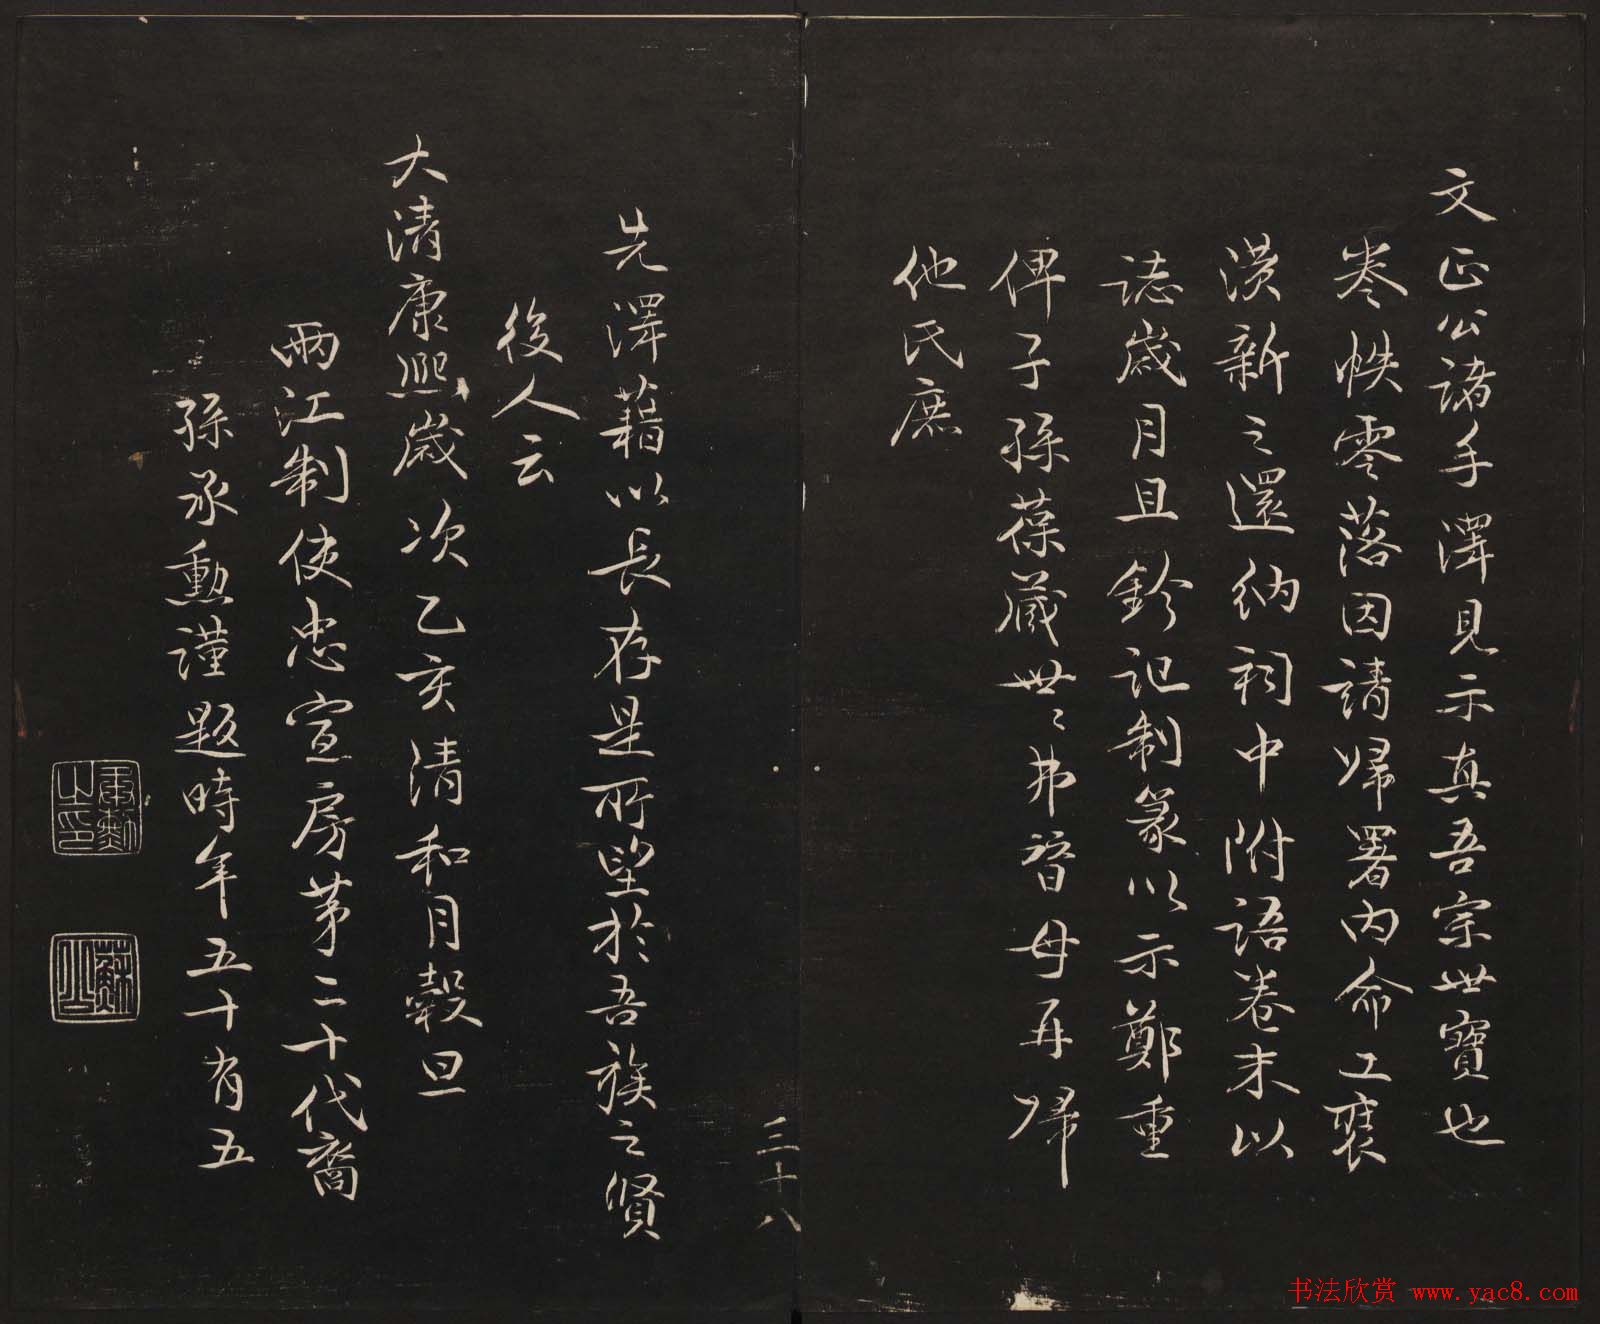 文正公諸手澤見示真吾宗世寶也
卷帙零落因請歸署內命工裝
潢新之還納祠中附語卷末以
誌歲月且鈐記制篆以示鄭重
俾子孫葆藏世〻弗替毋再歸
他氏庶
先澤藉以長存是所望於吾族之賢
後人云
大清康熙歲次乙亥清和月穀旦
兩江制使忠宣房苐二十代裔
孫承勳謹題時年五十有五
承勳之印
蘇公
三十八
书法欣赏 www.yac8.com